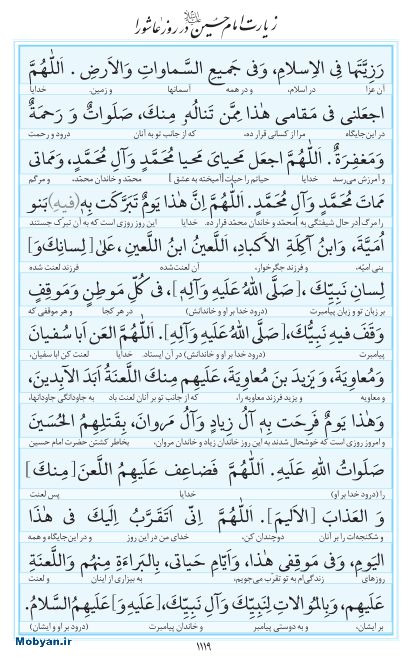 زیارت امام حسین علیه‌السلام در روز عاشورا
رَزِیَّتَها فِی الاِسلامِ، وَفی جَمیعِ السَّماواتِ وَالاَرضِ . اَللّٰهُمَّ
آن عزا در اسلام، و در همه آسمانها و زمین. خدایا
اجعَلنی فی مَقامی هٰذا مِمَّن تَنالُهُو مِنكَ، صَلَواتٌ وَ رَحمَةٌ
در این جایگاه مرا از کسانی قرار ده، که از جانب تو به آنان درود و رحمت
وَمَغفِرَةٌ . اَللّٰهُمَّ اجعَل مَحیایَ مَحیا مُحَمَّدٍ وَآلِ مُحَمَّدٍ، وَمَماتی
و آمرزش می‌رسد خدایا حیاتم را حیات [آمیخته به عشق] محمّد و خاندان محمّد، و مرگم
مَماتَ مُحَمَّدٍ وَآلِ مُحَمَّدٍ. اَللّٰهُمَّ اِنَّ هٰذا یَومٌ تَبَرَّكَت بِهِ (فیهِ) بَنو
را مرگ [در حال شیفتگی به] محمّد و خاندان محمّد قرار ده. خدایا این روز روزی است که به آن تبرک جستند
اُمَیَّةَ، وَابنُ آكِلَةِ الاَكبادِ، اَللَّعینُ ابنُ اللَّعینِ، عَلیٰ [لِسانِكَ وَ]
بنی امیّه، و فرزند جگرخوار، آن لعنت‌شده فرزند لعنت شده
لِسانِ نَبِیِّكَ ،[صَلَّی اللهُ عَلَیهِ وَ آلِهِ]، فی كُلِّ مَوطِنٍ وَمَوقِفٍ
بر زبان تو و زبان پیامبرت (درود خدا بر او و خاندانش) در هر کجا و هر موقفی که
وَقَفَ فیهِ نَبِیُّكَ،[صَلَّی اللهُ عَلَیهِ وَ آلِهِ]. اَللّٰهُمَّ العَن اَباسُفیانَ
پیامبرت (درود خدا بر او و خاندانش) در آن ایستاد. خدایا لعنت کن ابا سفیان،
وَمُعاوِیَةَ، وَ یَزیدَ بنَ مُعاوِیَةَ، عَلَیهِم مِنكَ اللَّعنَةُ اَبَدَ الآبِدینَ،
و معاویه و یزید فرزند معاویه را، که از جانب تو بر آنان لعنت باد به جاودانگی جاودانها،
وَهٰذا یَومٌ فَرِحَت بِهِ آلُ زِیادٍ وَآلُ مَروانَ، بِقَتلِهِمُ الحُسَینَ
و امروز روزی است که خوشحال شدند به این روز خاندان زیاد و خاندان مروان، بخاطر کشتن حضرت امام حسین
صَلَواتُ اللهِ عَلَیهِ. اَللّٰهُمَّ فَضاعِف عَلَیهِمُ اللَّعنَ [مِنكَ]
را (درود خدا بر او) خدایا پس لعنت
وَ العَذابَ [الاَلیمَ]. اَللّٰهُمَّ اِنّی اَتَقَرَّبُ اِلَیكَ فی هٰذَا
و شکنجه‌ات را بر آنان دوچندان کن، خدای من در این روز و در این جایگاه و همه
الیَومِ، وَفی مَوقِفی هٰذا، وَاَیّامِ حَیاتی، بِالبَراءَةِ مِنهُم وَاللَّعنَةِ
روزهای زندگی‌ام به تو تقرب می‌جویم، به بیزاری از اینان و لعنت
عَلَیهِم، وَبِالمُوالاتِ لِنَبِیِّكَ وَآلِ نَبِیِّكَ، [عَلَیهِ وَ]عَلَیهِمُ السَّلامُ.
بر ایشان، و به دوستی پیامبر و خاندان پیامبرت (درود بر او و ایشان)
Mobyan.ir
۱۱۱۹